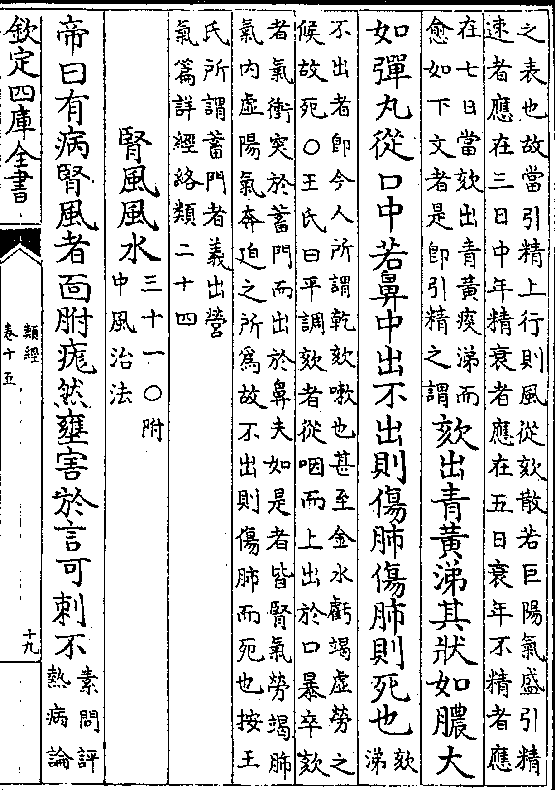 之表也故當引精上行則風從欬散若巨陽氣盛引精
速者應在三日中年精衰者應在五日衰年不精者應
在七日當欬出青黃痰涕而
愈如下文者是卽引精之謂
欬出青黃涕其狀如膿大
如彈丸從口中若鼻中出不出則傷肺傷肺則死也
欬
涕
不出者卽今人所謂乾欬嗽也甚至金水虧竭虛勞之
候故死○王氏曰平調欬者從咽而上出於口暴卒欬
者氣衝突於蓄門而出於鼻夫如是者皆腎氣勞竭肺
氣內虛陽氣奔迫之所爲故不出則傷肺而死也按王
氏所謂蓄門者義出營
氣篇詳經絡類二十四
腎風風水
三十一○附
中風治法
帝曰有病腎風者面胕痝然壅害於言可刺不
素問評
熱病論
欽定四庫全書
類經
卷十五
十九